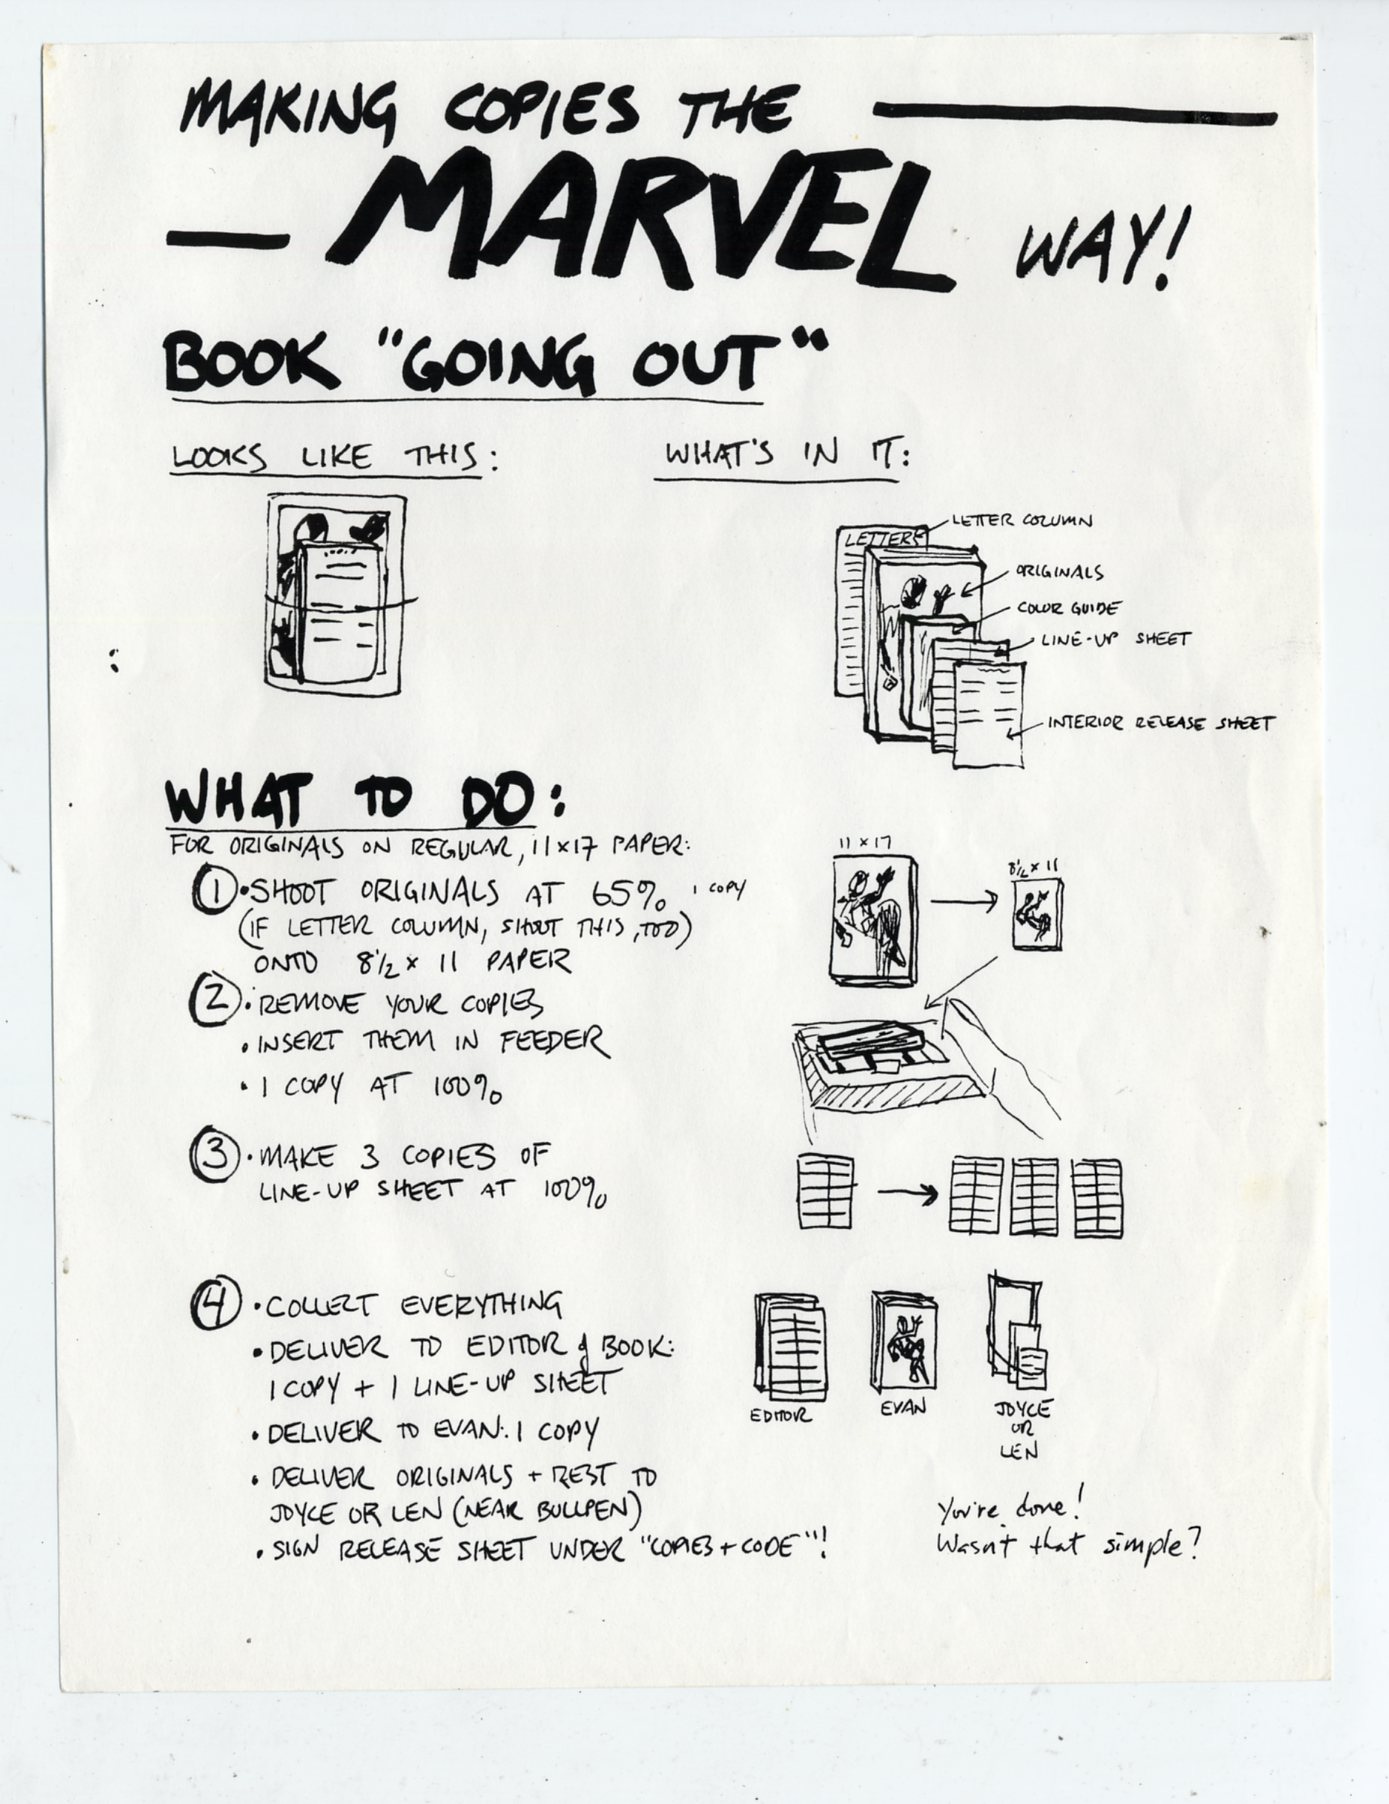 MAKING COPIES THE
MARVEL WAY!
BOOK "GOING OUT"
LOOKS LIKE THIS:
WHAT'S IN IT:
LETTERS
LETTER COLUMN
ORIGINALS
COLOR GUIDE
LINE-UP SHEET
INTERIOR RELEASE SHEET
WHAT TO DO:
FOR ORIGINALS ON REGULAR, 11x17 PAPER:
① • SHOOT ORIGINALS AT 65% 1 COPY
(IF LETTER COLUMN, SHOOT THIS, TOO)
ONTO 8½ x 11 PAPER
11 x 17
8½ x 11
② • REMOVE YOUR COPIES
• INSERT THEM IN FEEDER
• 1 COPY AT 100%
③ • MAKE 3 COPIES OF
LINE-UP SHEET AT 100%
④ • COLLECT EVERYTHING
• DELIVER TO EDITOR of BOOK:
1 COPY + 1 LINE-UP SHEET
• DELIVER TO EVAN: 1 COPY
• DELIVER ORIGINALS + REST TO
JOYCE OR LEN (NEAR BULLPEN)
• SIGN RELEASE SHEET UNDER "COPIES + CODE"!
EDITOR
EVAN
JOYCE
OR
LEN
You're done!
Wasn't that simple?